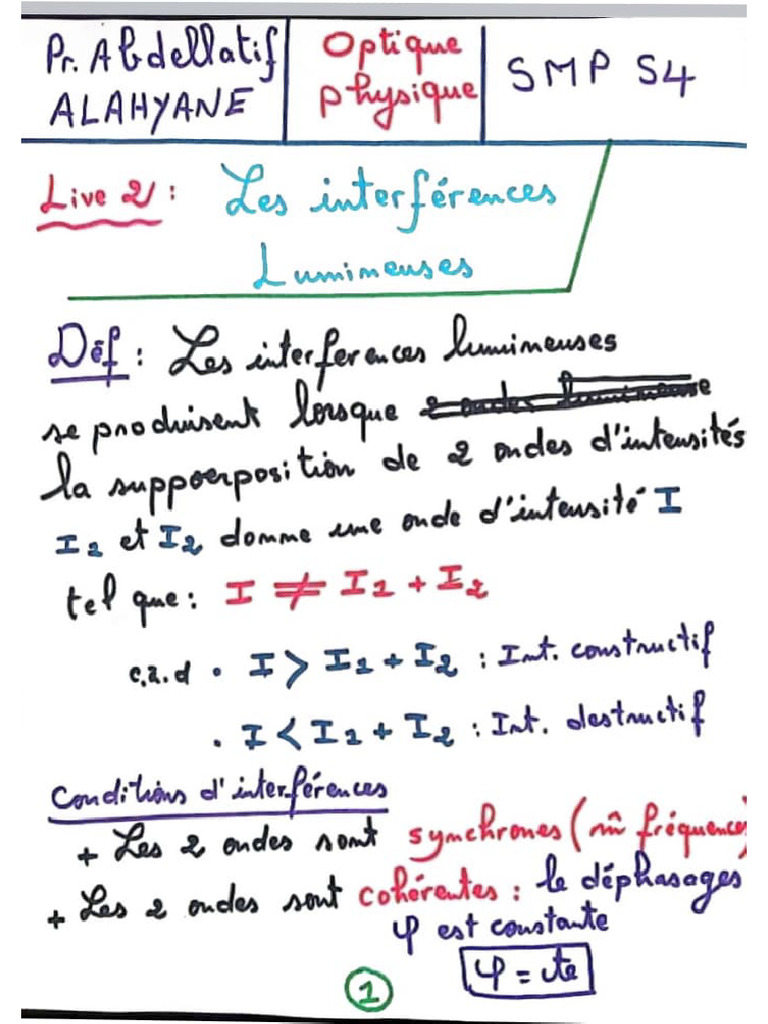 Pr. Abdellatif
ALAHYANE
Optique
physique
SMP S4
Live 2 : Les interférences
Lumineuses
Déf : Les interferences lumineuses
se produisent lorsque
la suppoerposition de 2 ondes d'intensités
I1 et I2 donne une onde d'intensité I
tel que : I ≠ I1 + I2
c.à.d • I > I1 + I2 : Int. constructif
• I < I1 + I2 : Int. destructif
Conditions d'interférences
+ Les 2 ondes sont synchrones (m̂ fréquence)
+ Les 2 ondes sont cohérentes : le déphasages
φ est constante
φ = cte
1